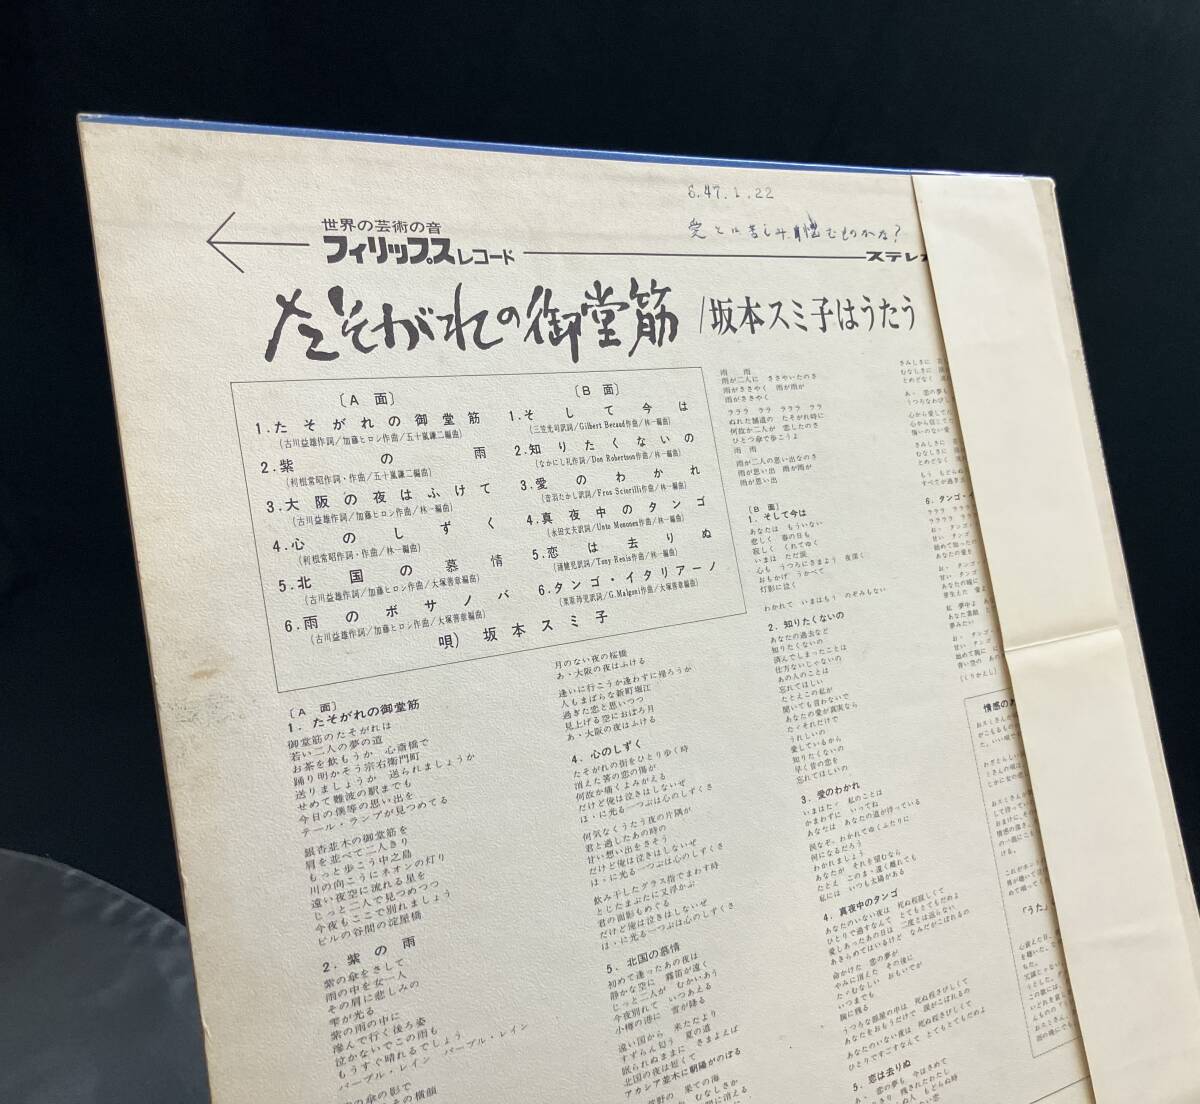 S.47.1.22
愛とは苦しみ悩むものかな?
世界の芸術の音
フィリップスレコード
ステレオ
たそがれの御堂筋/坂本スミ子はうたう
〔A 面〕
1.たそがれの御堂筋
(古川益雄作詞/加藤ヒロシ作曲/五十嵐謙二編曲)
2.紫の雨
(利根常昭作詞・作曲/五十嵐謙二編曲)
3.大阪の夜はふけて
(古川益雄作詞/加藤ヒロシ作曲/林一編曲)
4.心のしずく
(利根常昭作詞・作曲/林一編曲)
5.北国の慕情
(古川益雄作詞/加藤ヒロシ作曲/大塚善章編曲)
6.雨のボサノバ
(古川益雄作詞/加藤ヒロシ作曲/大塚善章編曲)
〔B 面〕
1.そして今は
(三笠光司訳詞/Gilbert Becaud作曲/林一編曲)
2.知りたくないの
(なかにし礼作詞/Don Robertson作曲/林一編曲)
3.愛のわかれ
(音羽たかし訳詞/Fros Sciorilli作曲/林一編曲)
4.真夜中のタンゴ
(永田文夫訳詞/Unto Mononen作曲/林一編曲)
5.恋は去りぬ
(漣健児訳詞/Tony Renis作曲/林一編曲)
6.タンゴ・イタリアーノ
(栗原邦児訳詞/G.Malgoni作曲/大塚善章編曲)
唄)坂本スミ子
〔A 面〕
1.たそがれの御堂筋
御堂筋のたそがれは
若い二人の夢の道
お茶を飲もうか 心斎橋で
踊り明かそう宗右衛門町
送りましょうか 送られましょうか
せめて難波の駅までも
今日の僕等の思い出を
テール・ランプが見つめてる
銀杏並木の御堂筋を
肩を並べて二人きり
もっと歩こう中之島
川の向こうにネオンの灯り
遠い夜空に流れる星を
じっと二人で見つめつつ
今夜もここで別れましょう
ビルの谷間の淀屋橋
2.紫の雨
紫の傘をさして
雨の中を女一人
その肩に悲しみの
雫が光る
紫の雨の中に
滲んで行く後ろ姿
泣かないでこの雨も
もうすぐ晴れるでしょう
パープル・レイン パープル・レイン
月のない夜の桜橋
あ・大阪の夜はふける
逢いに行こうか逢わずに帰ろうか
人もまばらな新町堀江
過ぎた恋と思いつつ
見上げる空におぼろ月
あ・大阪の夜はふける
4.心のしずく
たそがれの街をひとり歩く時
消えた筈の恋の傷が
何故か痛くよみがえる
だけど俺は泣きはしないぜ
ほ・に光る一つぶは心のしずくさ
何気なくうたう夜の片隅が
君と過したあの時の
甘い想い出をさそう
だけど俺は泣きはしないぜ
ほ・に光る一つぶは心のしずくさ
飲み干したグラス指でまわす時
とじたまぶたに又浮かぶ
君の面影もめぐる
だけど俺は泣きはしないぜ
ほ・に光る一つぶは心のしずくさ
5.北国の慕情
初めて逢ったあの夜は
静かな空に 霧笛が遠く
じっと二人が むかいあう
今夜別れて いつあえる
小樽の港に 雪が降る
遠い国から 来ただより
すずらん匂う 夏の道
眠られぬままに さまよえば
北国の夜は短くて
アカシア並木に朝陽がのぼる
果ての海
雨 雨
雨が二人に ささやいたのさ
雨がささやく 雨が雨が
雨がささやく
ラララ ララ ラララ ララ
ぬれた舗道の たそがれ時に
何故か二人が 恋したのさ
ひとつ傘で歩こうよ
雨 雨
雨が二人の思い出なのさ
雨が思い出 雨が雨が
雨が思い出
〔B 面〕
1.そして今は
あなたは もういない
悲しく 春の日も
寂しく くれてゆく
いまは ただ涙
心も うつろにさまよう 夜深く
おもかげ うかべて
灯影に泣く
わかれて いまはもう のぞみもない
2.知りたくないの
あなたの過去など
知りたくないの
済んでしまったことは
仕方ないじゃないの
あの人のことは
忘れてほしい
たとえこの私が
聞いても言わないで
あなたの愛が真実なら
たゞそれだけで
うれしいの
愛しているから
知りたくないの
早く昔の恋を
忘れてほしいの
3.愛のわかれ
いまはたゞ 私のことは
かまわずに いってね
あなたは あなたの道が待っている
涙なぞ、わかれてゆくふたりに
何になるだろう
わかれましょう
あなたが それを望むなら
たとえ このまゝ遠く離れても
私には いつも太陽がある
4.真夜中のタンゴ
あなたのいない夜は 死ぬ程寂しくて
ひとりで過すなんて とてもとてもだめよ
愛しあったあの日は 二度とは返らない
あきらめてはいるけど なみだがこぼれるの
命かけた 恋の夢が
やみに消えた その後に
たゞむなしい おもいでが
いつまでも
胸に残る
うつろな部屋の中は 死ぬ程さびしくて
あなたをおもうだけで 涙がこぼれるの
あなたのいない夜は 死ぬ程さびしくて
ひとりですごすなんて とてもとてもだめよ
5.恋は去りぬ
6.タンゴ・イ
(くりかえし)